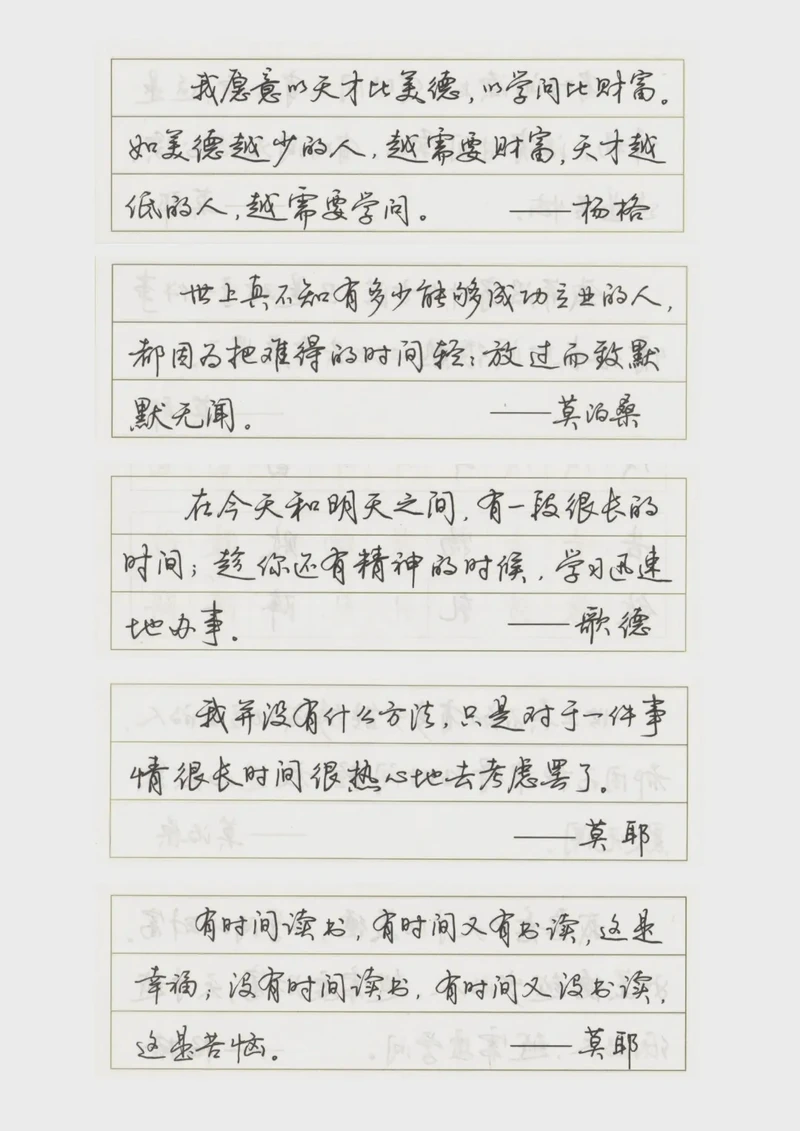 我愿意以天才比美德，以学问比财富。
如美德越少的人，越需要财富，天才越
低的人，越需要学问。 ——杨格
世上真不知有多少能够成功立业的人，
都因为把难得的时间轻轻放过而致默
默无闻。 ——莫泊桑
在今天和明天之间，有一段很长的
时间；趁你还有精神的时候，学习迅速
地办事。 ——歌德
我并没有什么方法，只是对于一件事
情很长时间很热心地去考虑罢了。
——莫耶
有时间读书，有时间又有书读，这是
幸福；没有时间读书，有时间又没书读，
这是苦恼。 ——莫耶